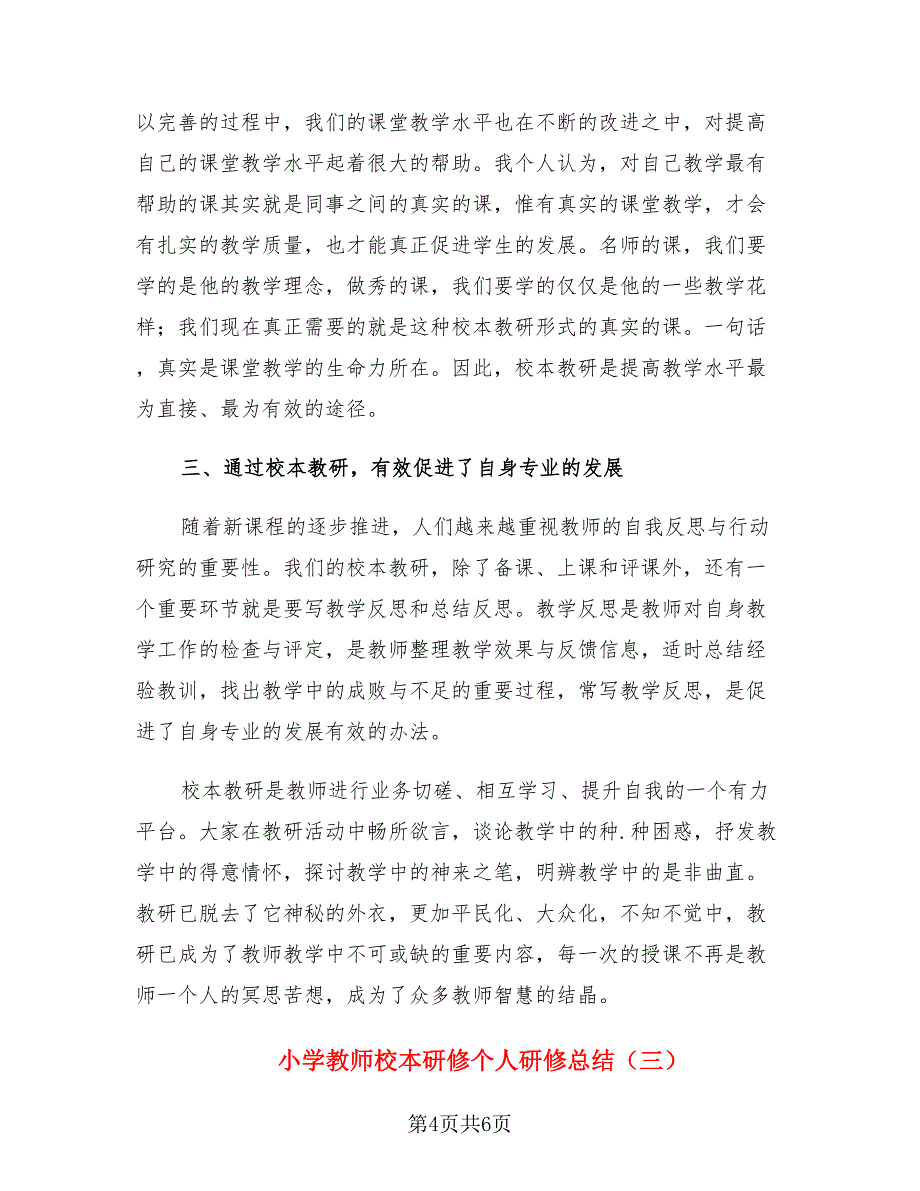 以完善的过程中，我们的课堂教学水平也在不断的改进之中，对提高
自己的课堂教学水平起着很大的帮助。我个人认为，对自己教学最有
帮助的课其实就是同事之间的真实的课，惟有真实的课堂教学，才会
有扎实的教学质量，也才能真正促进学生的发展。名师的课，我们要
学的是他的教学理念，做秀的课，我们要学的仅仅是他的一些教学花
样；我们现在真正需要的就是这种校本教研形式的真实的课。一句话
，真实是课堂教学的生命力所在。因此，校本教研是提高教学水平最
为直接、最为有效的途径。
三、通过校本教研，有效促进了自身专业的发展
随着新课程的逐步推进，人们越来越重视教师的自我反思与行动
研究的重要性。我们的校本教研，除了备课、上课和评课外，还有一
个重要环节就是要写教学反思和总结反思。教学反思是教师对自身教
学工作的检查与评定，是教师整理教学效果与反馈信息，适时总结经
验教训，找出教学中的成败与不足的重要过程，常写教学反思，是促
进了自身专业的发展有效的办法。
校本教研是教师进行业务切磋、相互学习、提升自我的一个有力
平台。大家在教研活动中畅所欲言，谈论教学中的种.种困惑，抒发教
学中的得意情怀，探讨教学中的神来之笔，明辨教学中的是非曲直。
教研已脱去了它神秘的外衣，更加平民化、大众化，不知不觉中，教
研已成为了教师教学中不可或缺的重要内容，每一次的授课不再是教
师一个人的冥思苦想，成为了众多教师智慧的结晶。
小学教师校本研修个人研修总结（三）
第4页共6页